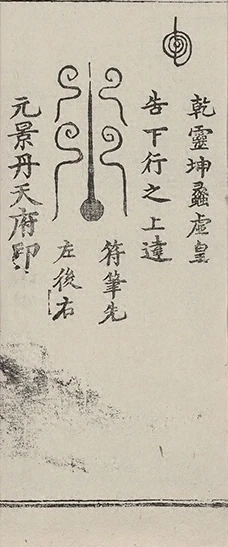 乾靈坤蠡虛皇
告下行之上達
符筆先
左後右
元景丹天府印